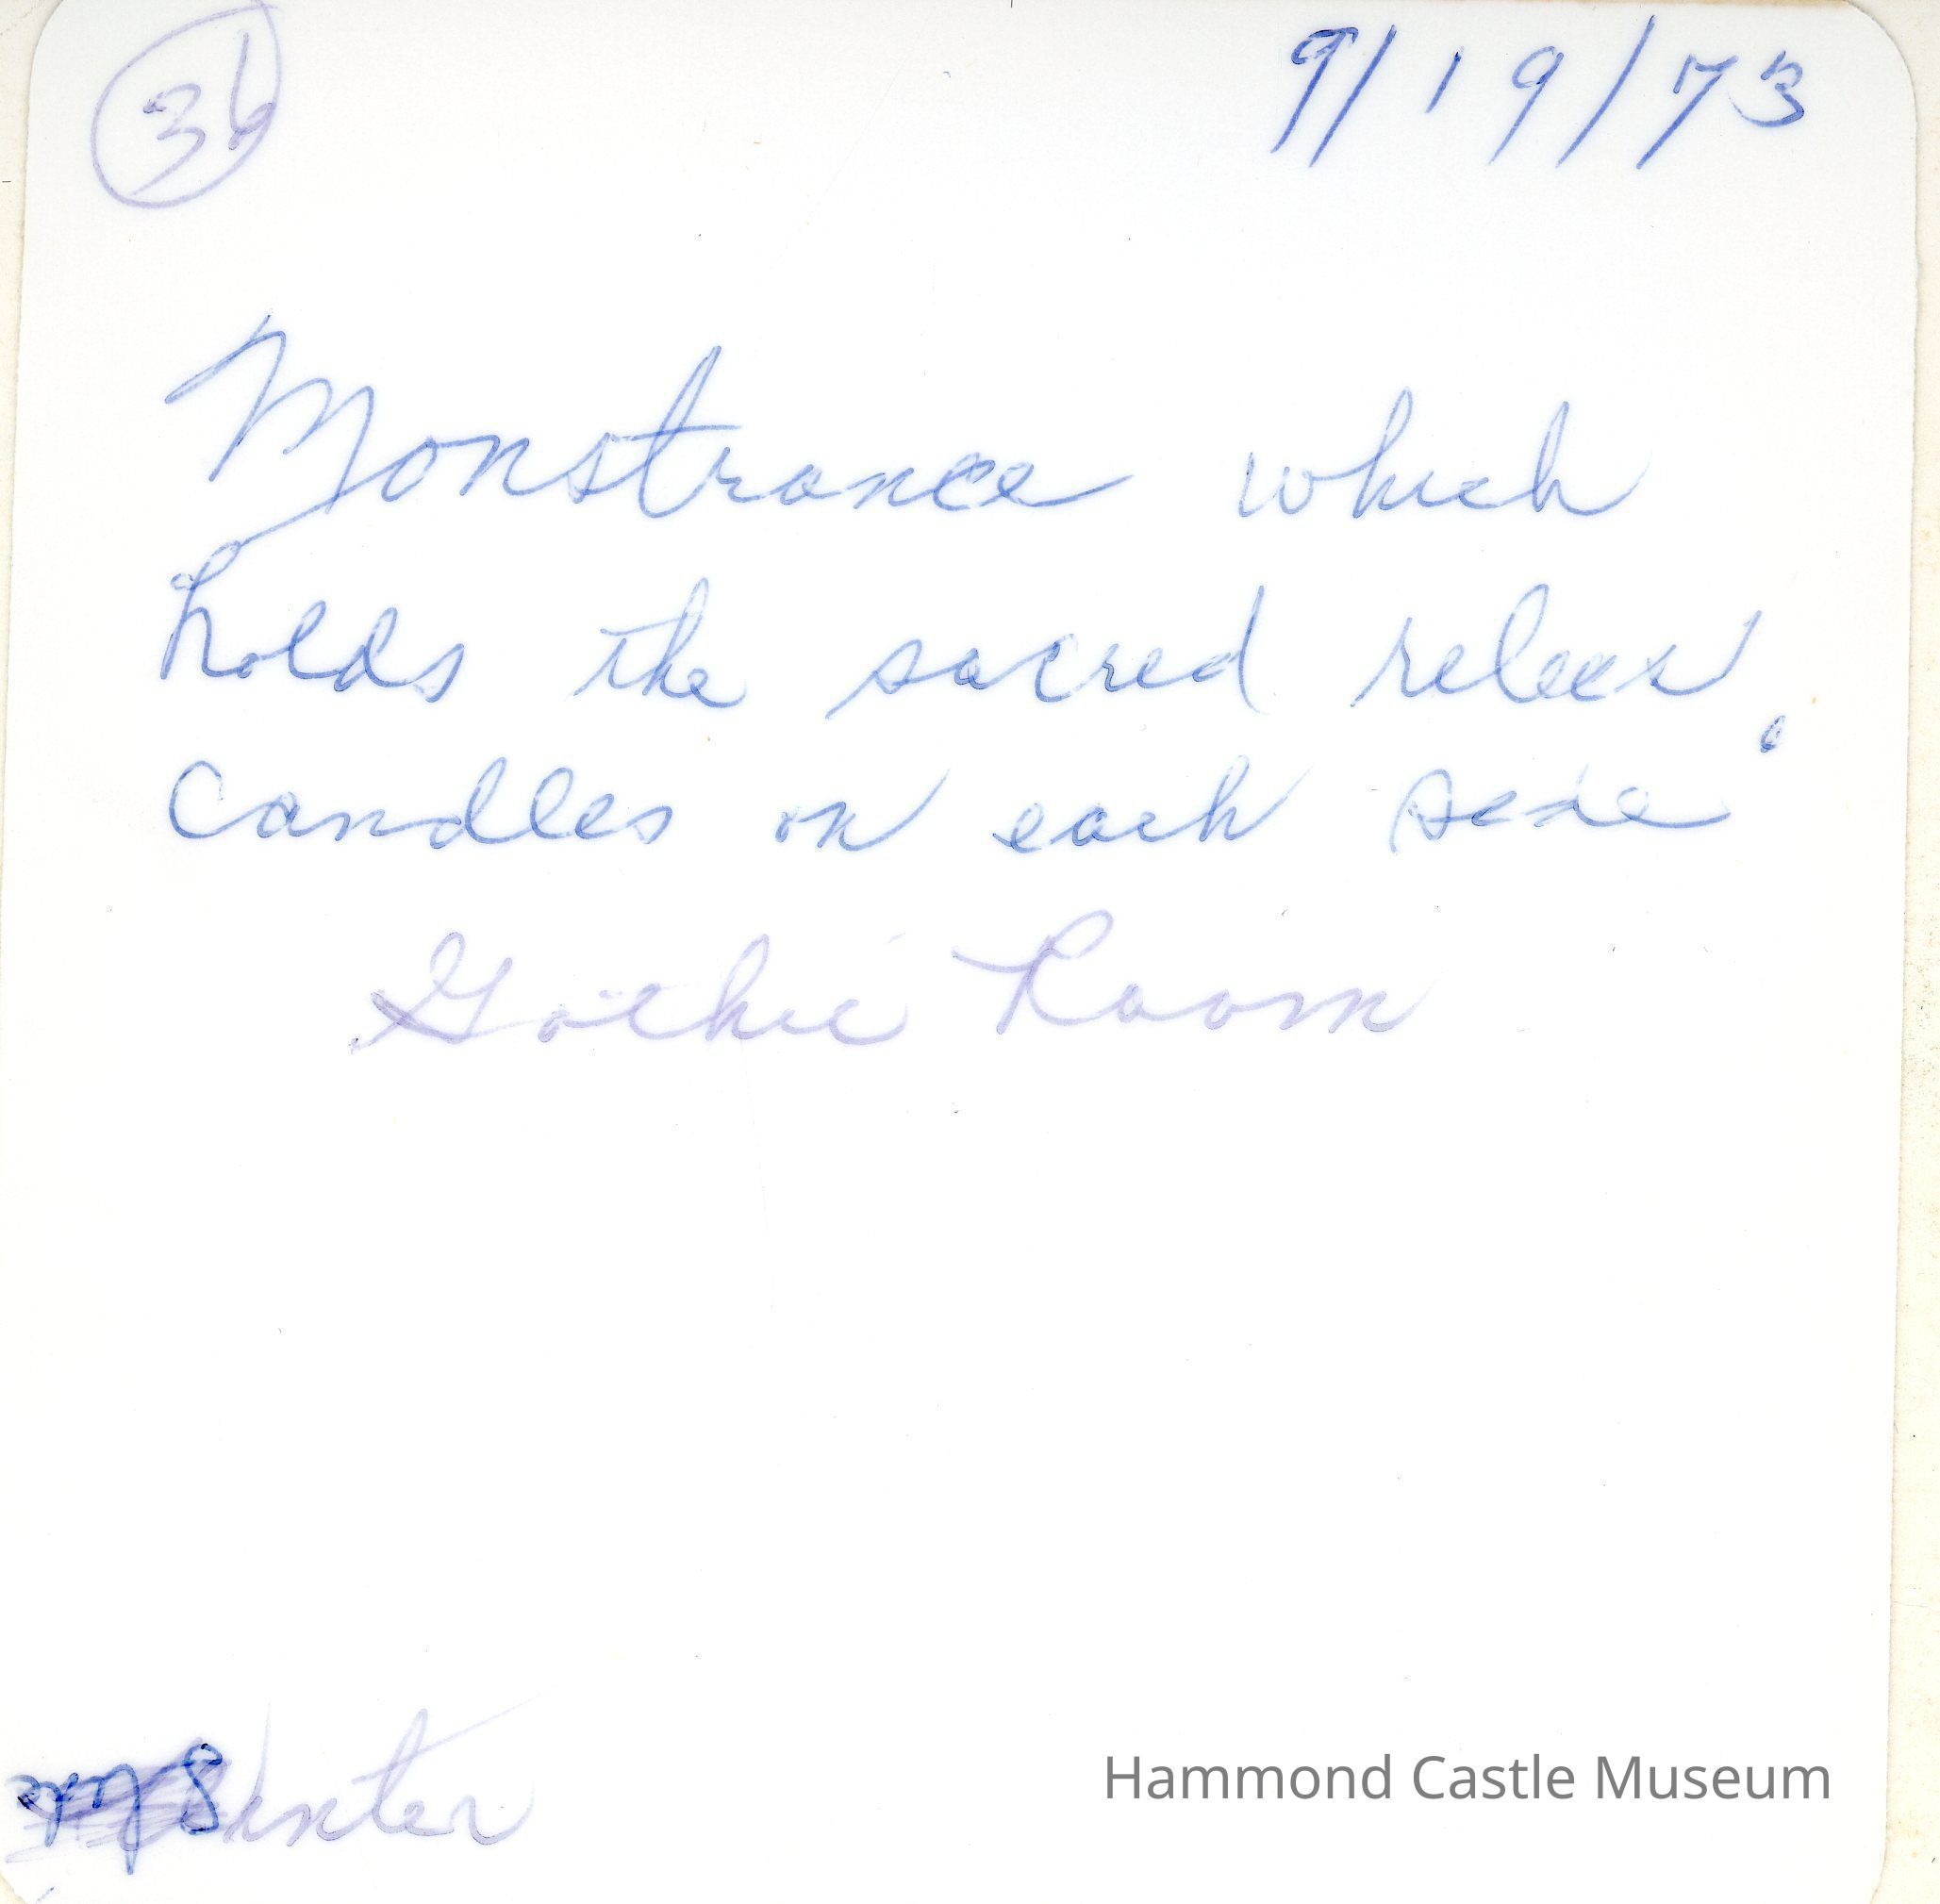 36
9/19/73
Monstrance which
holds the sacred relics.
Candles on each side
Gothic Room
Winter
Hammond Castle Museum